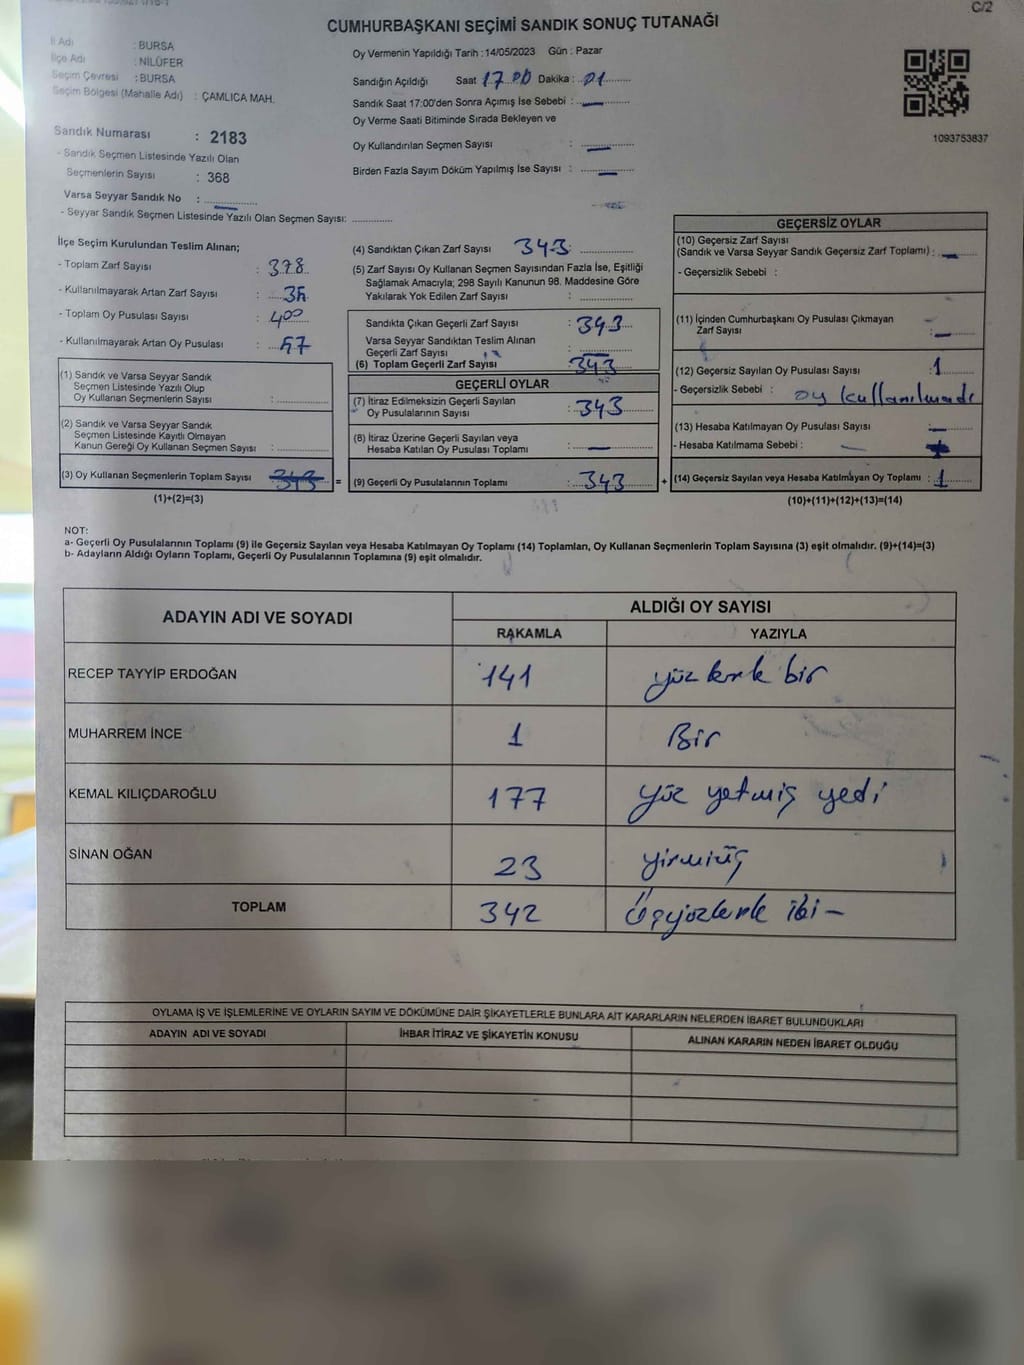 C/2
CUMHURBAŞKANI SEÇİMİ SANDIK SONUÇ TUTANAĞI
İl Adı : BURSA
İlçe Adı : NİLÜFER
Seçim Çevresi : BURSA
Seçim Bölgesi (Mahalle Adı) : ÇAMLICA MAH.
Sandık Numarası : 2183
- Sandık Seçmen Listesinde Yazılı Olan
Seçmenlerin Sayısı : 368
Varsa Seyyar Sandık No :
- Seyyar Sandık Seçmen Listesinde Yazılı Olan Seçmen Sayısı:
Oy Vermenin Yapıldığı Tarih : 14/05/2023 Gün : Pazar
Sandığın Açıldığı Saat 17.00 Dakika : 01
Sandık Saat 17:00'den Sonra Açımış İse Sebebi : —
Oy Verme Saati Bitiminde Sırada Bekleyen ve
Oy Kullandırılan Seçmen Sayısı : —
Birden Fazla Sayım Döküm Yapılmış İse Sayısı : —
1093753837
İlçe Seçim Kurulundan Teslim Alınan;
- Toplam Zarf Sayısı : 378
- Kullanılmayarak Artan Zarf Sayısı :
- Toplam Oy Pusulası Sayısı : 400
- Kullanılmayarak Artan Oy Pusulası : 57
(1) Sandık ve Varsa Seyyar Sandık
Seçmen Listesinde Yazılı Olup
Oy Kullanan Seçmenlerin Sayısı :
(2) Sandık ve Varsa Seyyar Sandık
Seçmen Listesinde Kayıtlı Olmayan
Kanun Gereği Oy Kullanan Seçmen Sayısı :
(3) Oy Kullanan Seçmenlerin Toplam Sayısı 343 =
(1)+(2)=(3)
(4) Sandıktan Çıkan Zarf Sayısı 343
(5) Zarf Sayısı Oy Kullanan Seçmen Sayısından Fazla İse, Eşitliği
Sağlamak Amacıyla; 298 Sayılı Kanunun 98. Maddesine Göre
Yakılarak Yok Edilen Zarf Sayısı :
Sandıkta Çıkan Geçerli Zarf Sayısı : 343
Varsa Seyyar Sandıktan Teslim Alınan
Geçerli Zarf Sayısı : —
(6) Toplam Geçerli Zarf Sayısı : 343
GEÇERLİ OYLAR
(7) İtiraz Edilmeksizin Geçerli Sayılan
Oy Pusulalarının Sayısı : 343
(8) İtiraz Üzerine Geçerli Sayılan veya
Hesaba Katılan Oy Pusulası Toplamı : —
(9) Geçerli Oy Pusulalarının Toplamı : 343 +
GEÇERSİZ OYLAR
(10) Geçersiz Zarf Sayısı
(Sandık ve Varsa Seyyar Sandık Geçersiz Zarf Toplamı) : —
- Geçersizlik Sebebi :
(11) İçinden Cumhurbaşkanı Oy Pusulası Çıkmayan
Zarf Sayısı : —
(12) Geçersiz Sayılan Oy Pusulası Sayısı : 1
- Geçersizlik Sebebi : oy kullanılmadı
(13) Hesaba Katılmayan Oy Pusulası Sayısı : —
- Hesaba Katılmama Sebebi :
(14) Geçersiz Sayılan veya Hesaba Katılmayan Oy Toplamı : 1
(10)+(11)+(12)+(13)=(14)
NOT:
a- Geçerli Oy Pusulalarının Toplamı (9) ile Geçersiz Sayılan veya Hesaba Katılmayan Oy Toplamı (14) Toplamları, Oy Kullanan Seçmenlerin Toplam Sayısına (3) eşit olmalıdır. (9)+(14)=(3)
b- Adayların Aldığı Oyların Toplamı, Geçerli Oy Pusulalarının Toplamına (9) eşit olmalıdır.
ADAYIN ADI VE SOYADI ALDIĞI OY SAYISI
RAKAMLA YAZIYLA
RECEP TAYYİP ERDOĞAN 141 yüz kırk bir
MUHARREM İNCE 1 Bir
KEMAL KILIÇDAROĞLU 177 yüz yetmiş yedi
SİNAN OĞAN 23 yirmiüç
TOPLAM 342 Üçyüzkırk iki —
OYLAMA İŞ VE İŞLEMLERİNE VE OYLARIN SAYIM VE DÖKÜMÜNE DAİR ŞİKAYETLERLE BUNLARA AİT KARARLARIN NELERDEN İBARET BULUNDUKLARI
ADAYIN ADI VE SOYADI İHBAR İTİRAZ VE ŞİKAYETİN KONUSU ALINAN KARARIN NEDEN İBARET OLDUĞU